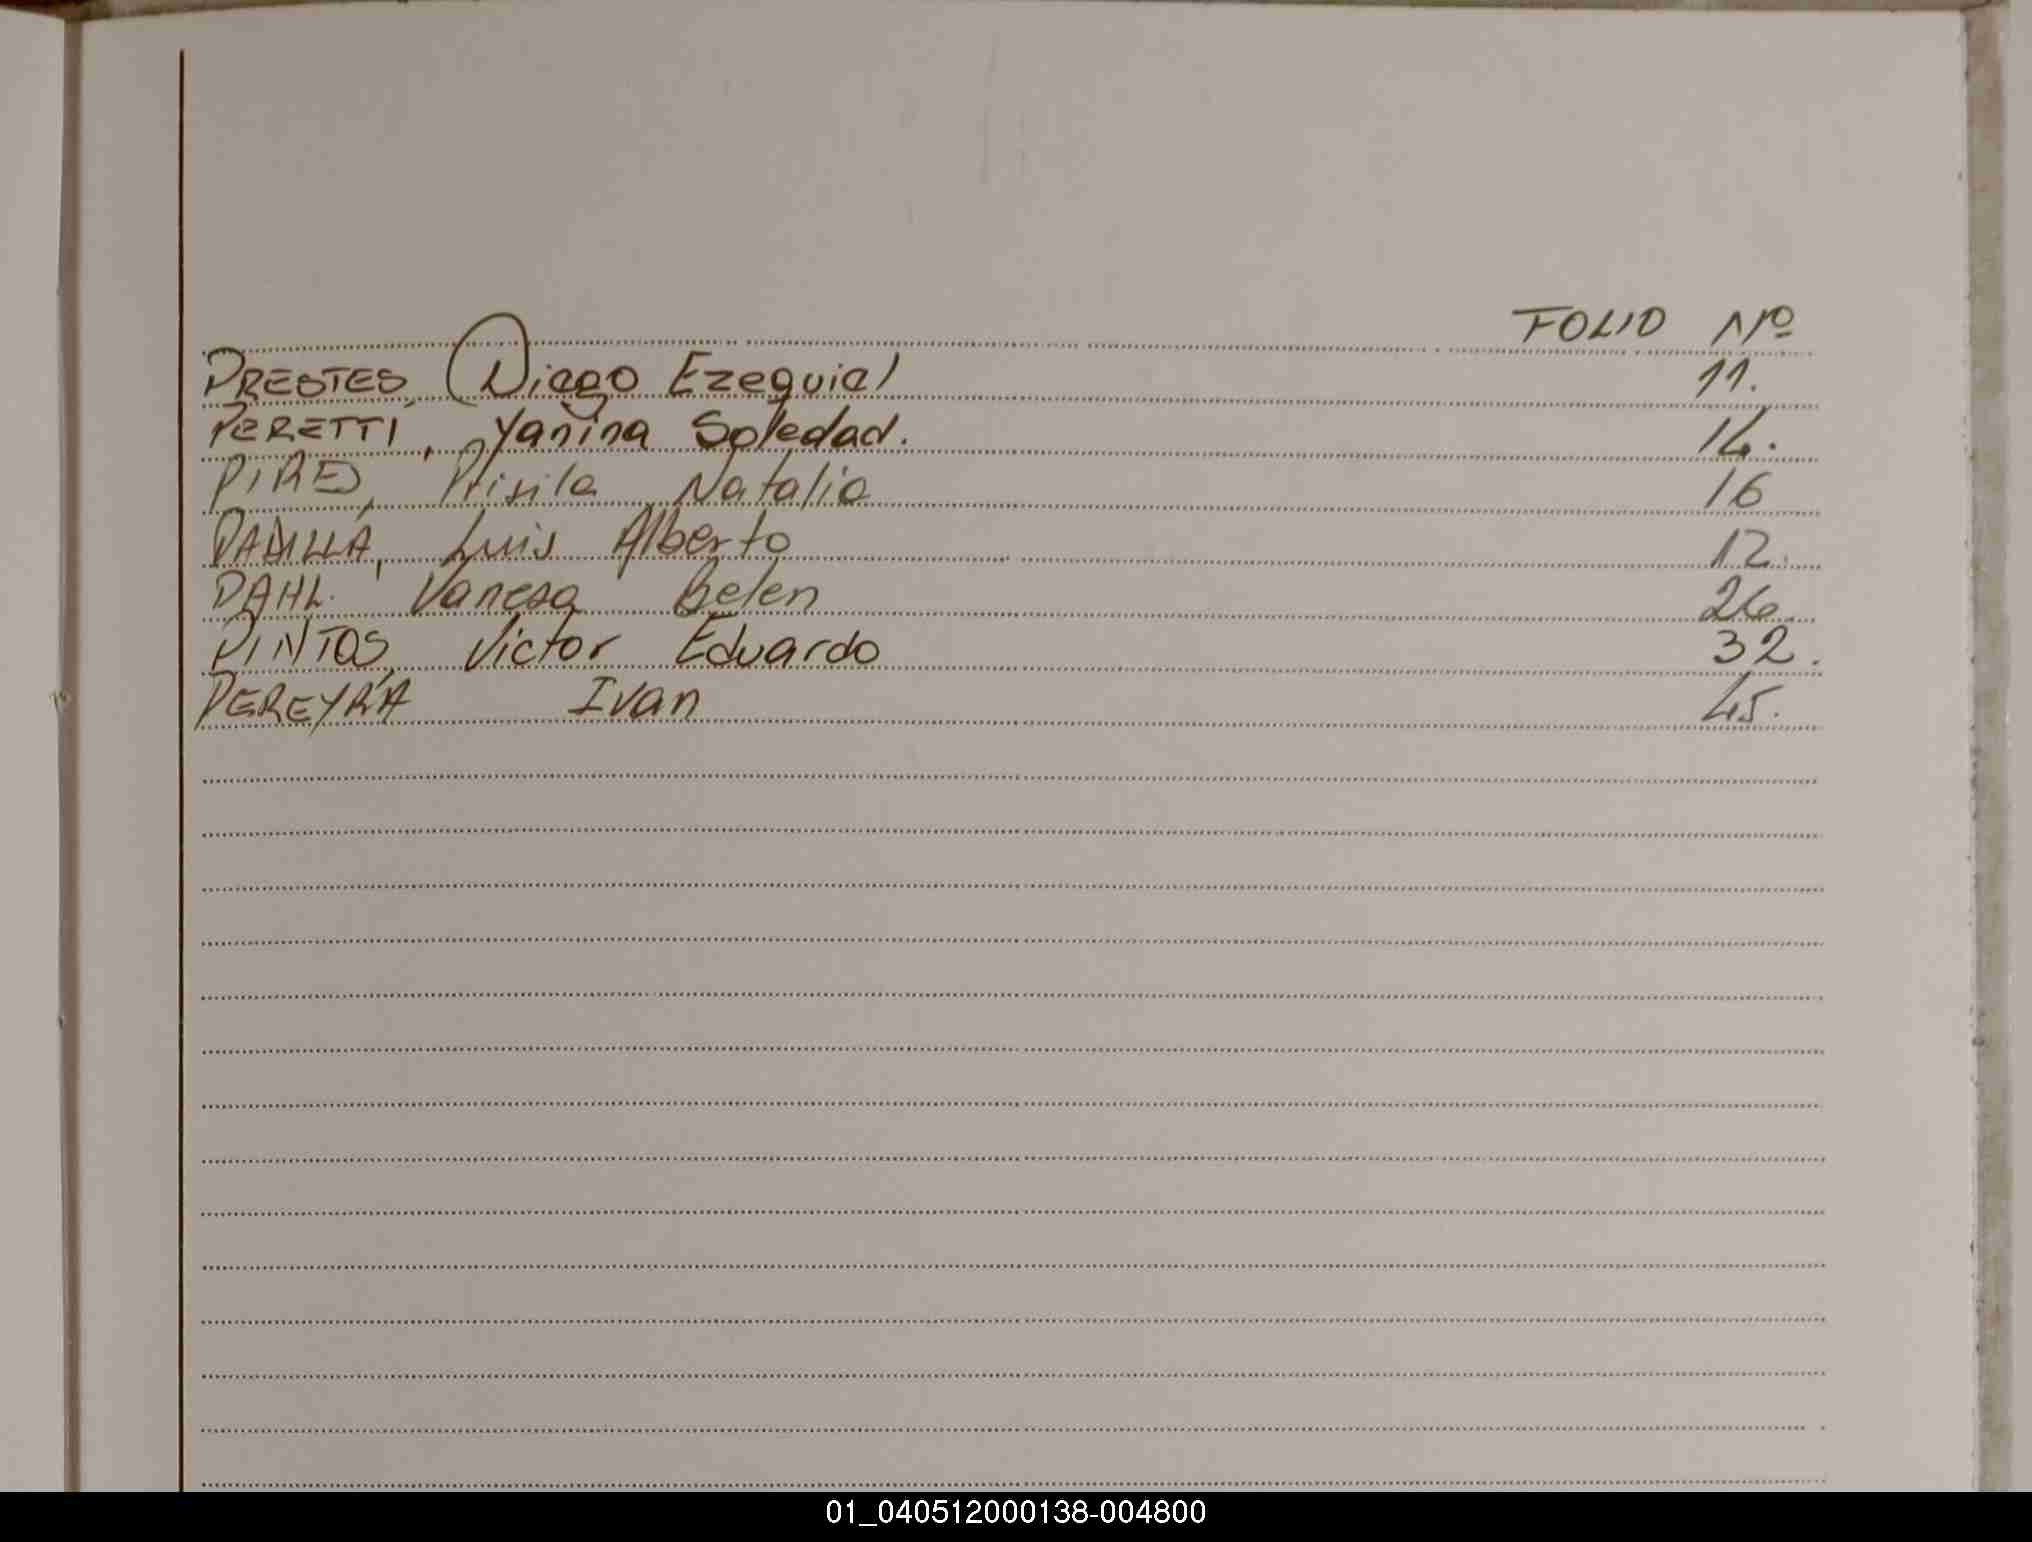 FOLIO Nº
PRESTES, Diego Ezequiel 11.
PERETTI, Yanina Soledad. 14.
PIRES, Prisila Natalia 16
PADILLA, Luis Alberto 12.
DAHL. Vanesa Belen 26.
PINTOS, Victor Eduardo 32.
PEREYRA Ivan 45.
01_040512000138-004800